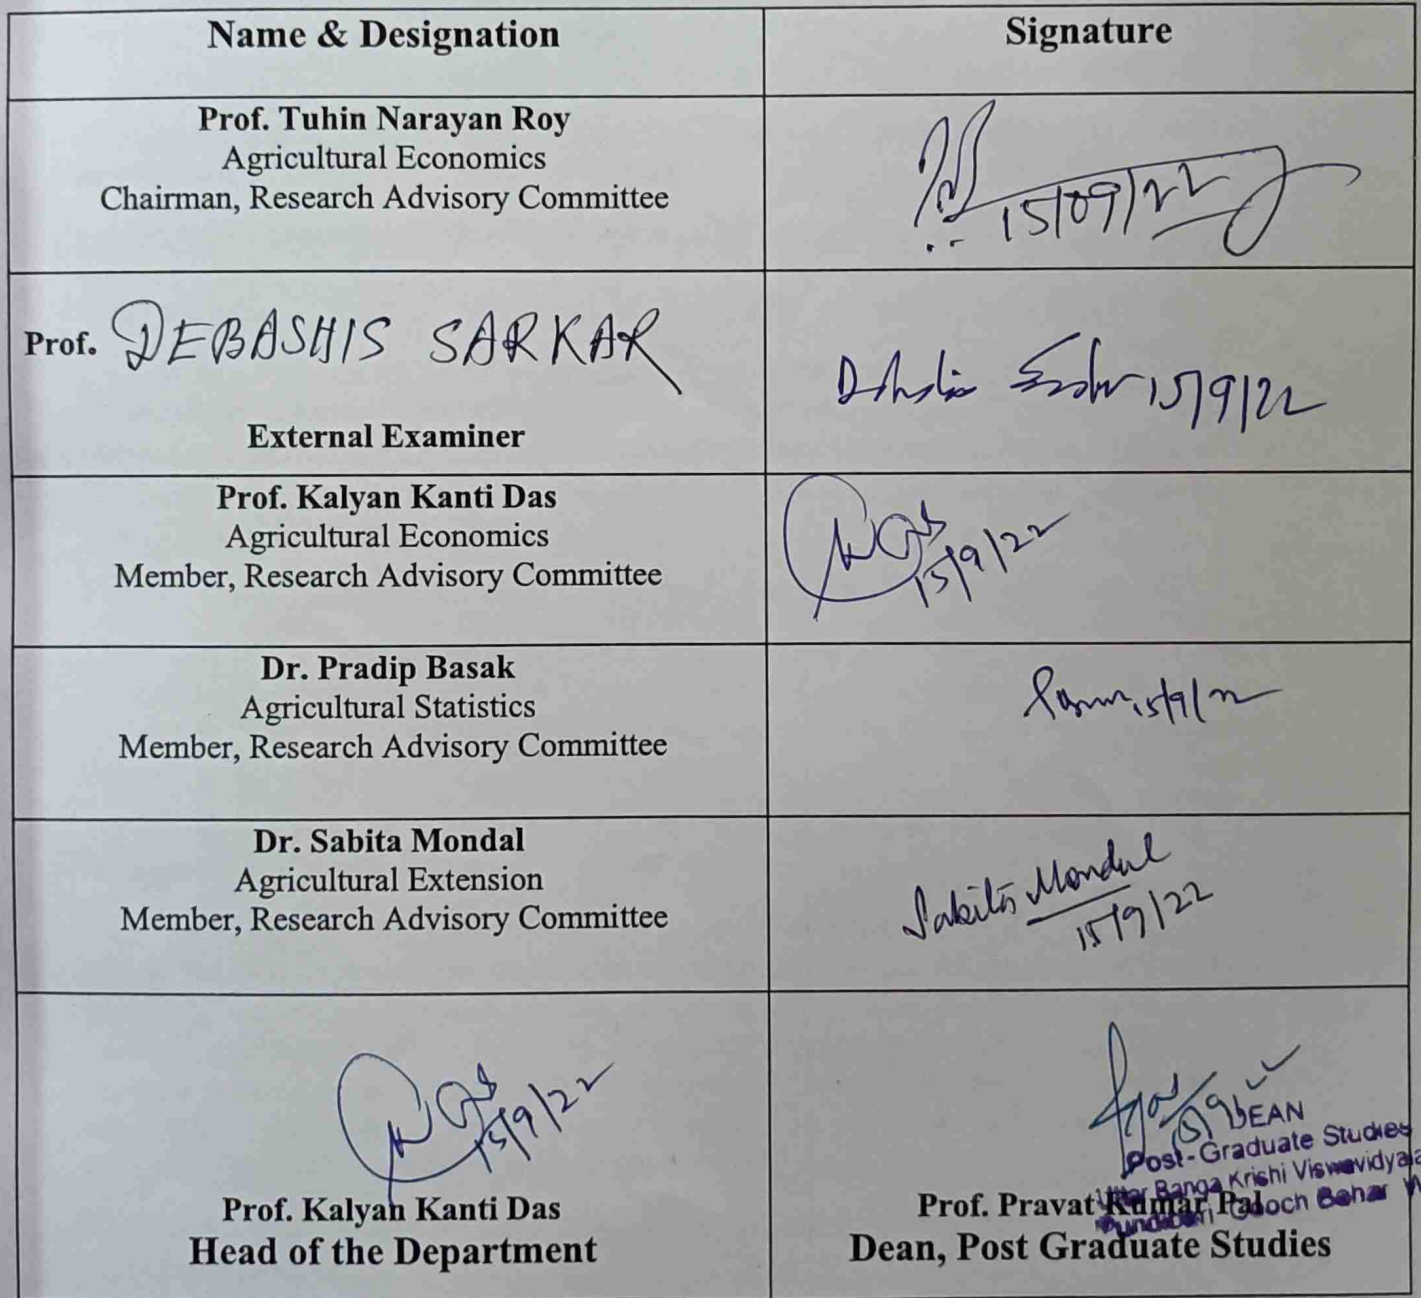 Name & Designation
Signature
Prof. Tuhin Narayan Roy
Agricultural Economics
Chairman, Research Advisory Committee
15/09/22
Prof. DEBASHIS SARKAR
External Examiner
15/9/22
Prof. Kalyan Kanti Das
Agricultural Economics
Member, Research Advisory Committee
15/9/22
Dr. Pradip Basak
Agricultural Statistics
Member, Research Advisory Committee
15/9/22
Dr. Sabita Mondal
Agricultural Extension
Member, Research Advisory Committee
Sabita Mondal
15/9/22
15/9/22
Prof. Kalyan Kanti Das
Head of the Department
DEAN
Post-Graduate Studies
Uttar Banga Krishi Viswavidyala
Pundibari Cooch Behar W
Prof. Pravat Kumar Pal
Dean, Post Graduate Studies